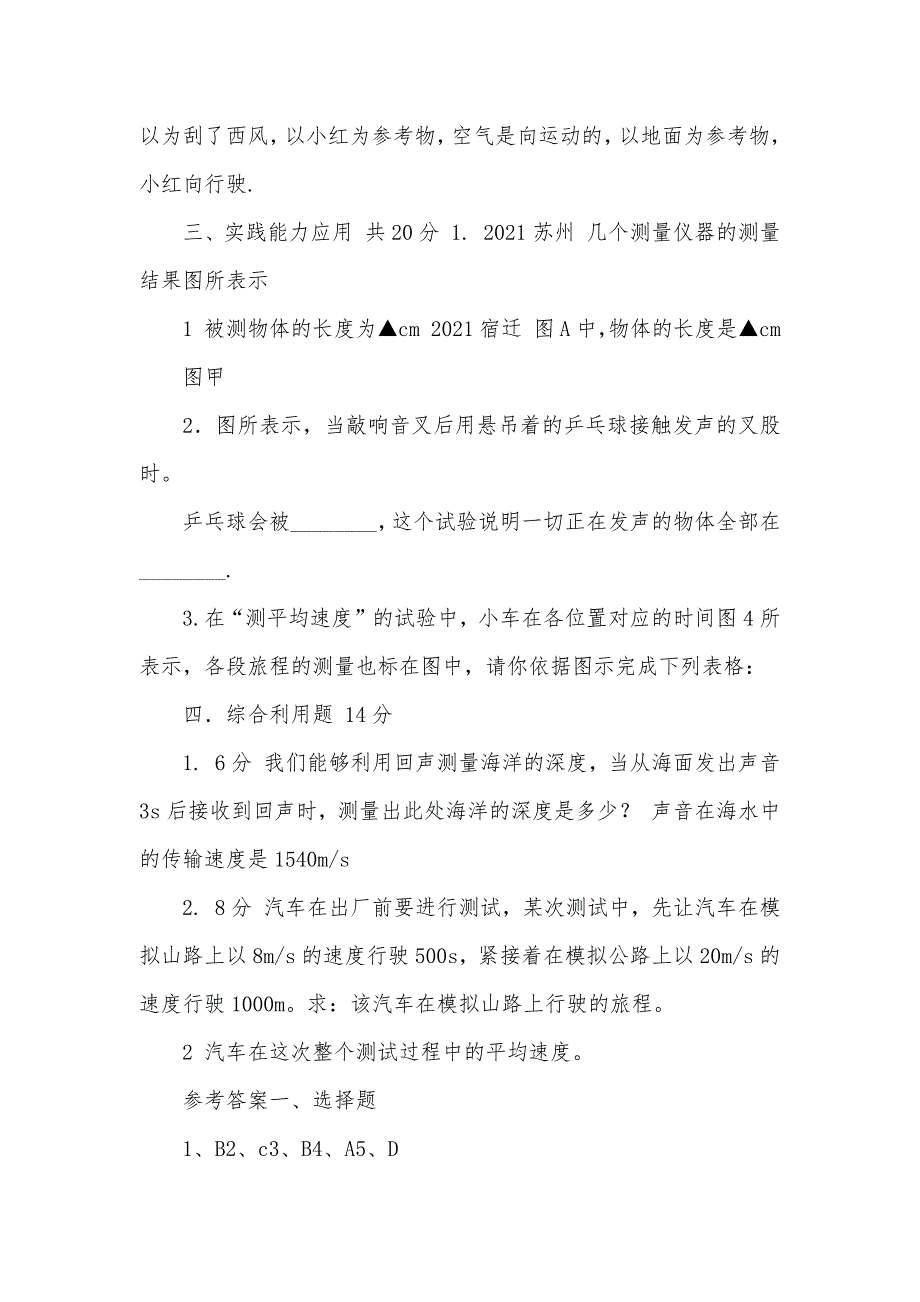 以为刮了西风,以小红为参考物,空气是向运动的,以地面为参考物,
小红向行驶.
三、实践能力应用 共20分 1. 2021苏州 几个测量仪器的测量
结果图所表示
1 被测物体的长度为▲cm 2021宿迁 图A中,物体的长度是▲cm
图甲
2．图所表示，当敲响音叉后用悬吊着的乒乓球接触发声的叉股
时。
乒乓球会被________,这个试验说明一切正在发声的物体全部在
________.
3.在“测平均速度”的试验中，小车在各位置对应的时间图4所
表示，各段旅程的测量也标在图中，请你依据图示完成下列表格：
四．综合利用题 14分
1. 6分 我们能够利用回声测量海洋的深度，当从海面发出声音
3s后接收到回声时，测量出此处海洋的深度是多少？ 声音在海水中
的传输速度是1540m/s
2. 8分 汽车在出厂前要进行测试，某次测试中，先让汽车在模
拟山路上以8m/s的速度行驶500s，紧接着在模拟公路上以20m/s的
速度行驶1000m。求：该汽车在模拟山路上行驶的旅程。
2 汽车在这次整个测试过程中的平均速度。
参考答案一、选择题
1、B2、c3、B4、A5、D